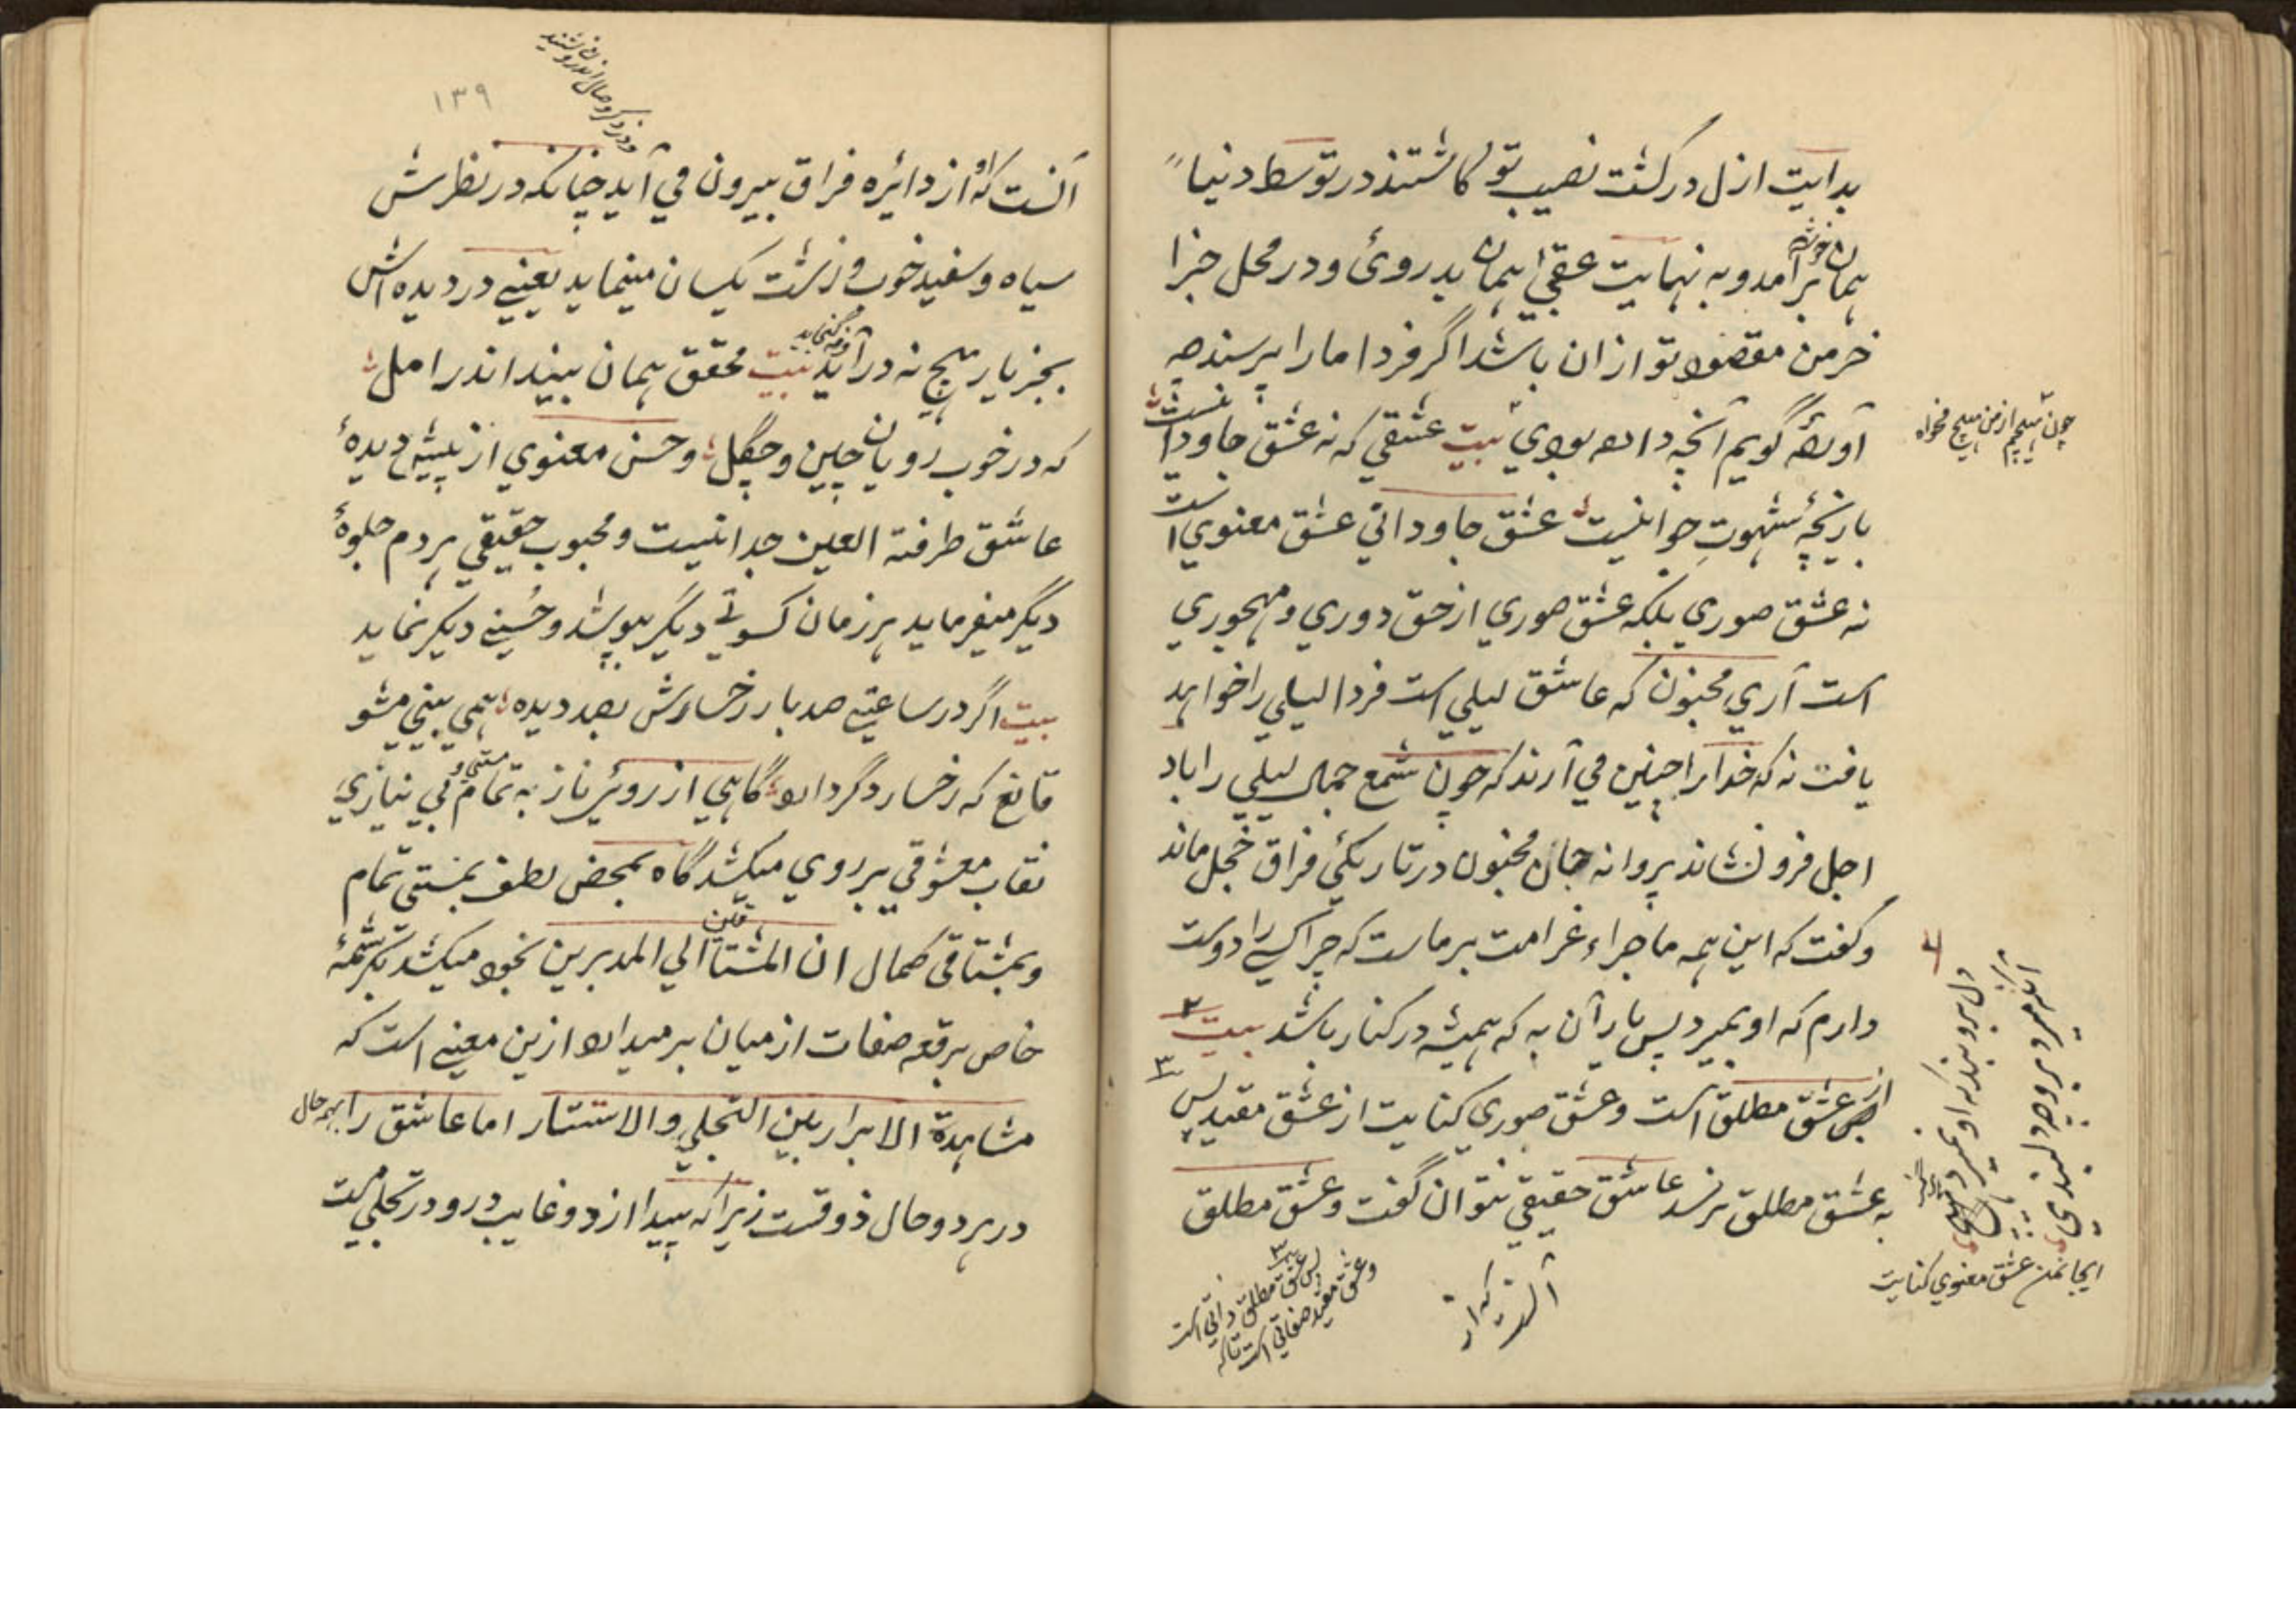 بدایت ازل در کشت نصیب تو کاشتند در توسط دنیا
همان خوشه برآمد و به نهایت عقبی همان بدروئ و در محل جزا
خرمن مقصود تو ازان باشد اگر فردا ما را پرسند چه
آورده گویم آنچه داده بودی بیت عشقی که نه عشق جاودانیست
بازیچهٔ شهوتِ جوانیست عشق جاودانی عشق معنوی است
نه عشق صوری بلکه عشق صوری از حق دوری و مهجوری
است آری مجنون که عاشق لیلی است فردا لیلی را خواهد
یافت نه که خدا را چنین می آرند که چون شمع جمال لیلی را باد
اجل فرو نشاند پروانه جان مجنون در تاریکیٔ فراق خجل ماند
و گفت که این همه ماجراء غرامت بر ماست که چرا کسی را دوست
دارم که او بمیرد پس یار آن به که همیشه در کنار باشد بیت
از عشق مطلق است و عشق صوری کنایت از عشق مقید پس
به عشق مطلق نرسد عاشق حقیقی نتوان گفت و عشق مطلق
چون هیچم از من هیچ مخواه
دل برو بند که او نمیرد هرگز
آنکه میرد برو چه دلبندی
اینجا نمن عشق معنوی کنایت
پس عشق مطلق ذاتی است
و عشق مقید صفاتی است تا که
آنست که از
۱۳۹
آنست که او از دائره فراق بیرون می آید چنانکه در نظرش
سیاه و سفید خوب و زشت یکسان مینماید یعنی در دیده اش
بجز یار هیچ نه درآید و نه گنجاید بیت محقق همان بیند اندر امل
که در خوب رویان چین و چگل و حسن معنوی از پیش دیدهٔ
عاشق طرفة العین جدا نیست و محبوب حقیقی هر دم جلوهٔ
دیگر میفرماید هر زمان کسوتی دیگر بپوشد و حُسنی دیگر نماید
بیت اگر در ساعتی صد بار رخسارش بصد دیده همی بینی مشو
قانع که رخسار دگر دارد گاهی از روئی ناز به تمام بی نیازی
نقاب معشوقی بر روی میکشد گاه بمحض لطف بمستی تمام
و بمشتاقی کمال ان المشتاقین الی المدبرین بخود میکشد بکرشمهٔ
خاص برقعه صفات از میان بر میدارد ازین معنی است که
مشاهدة الابرار بین التجلی و الاستتار اما عاشق را بهر حال
در هر دو حال ذوقست زیرا که پیدا ازو و غایب درو در تجلی است